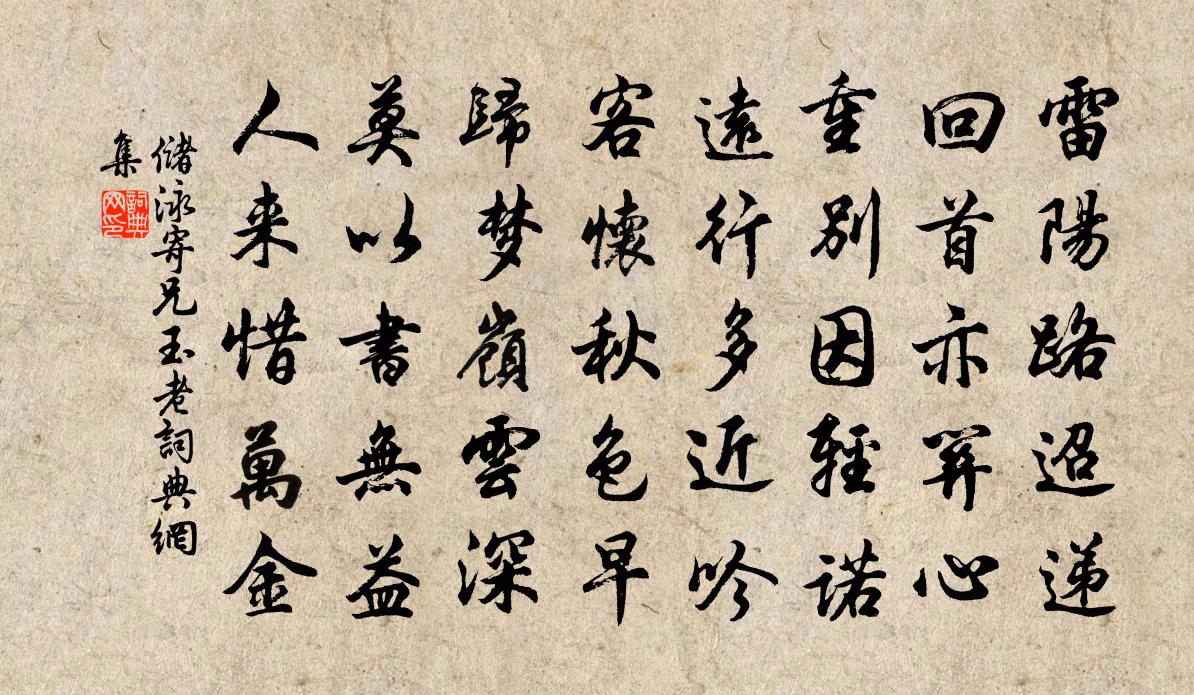 雷陽路迢递
回首亦關心
重别因輕諾
遠行多近吟
客懷秋色早
歸梦嶺雲深
莫以書無益
人来惜萬金
儲泳寄兄玉老詞典網
集
詞典
网印